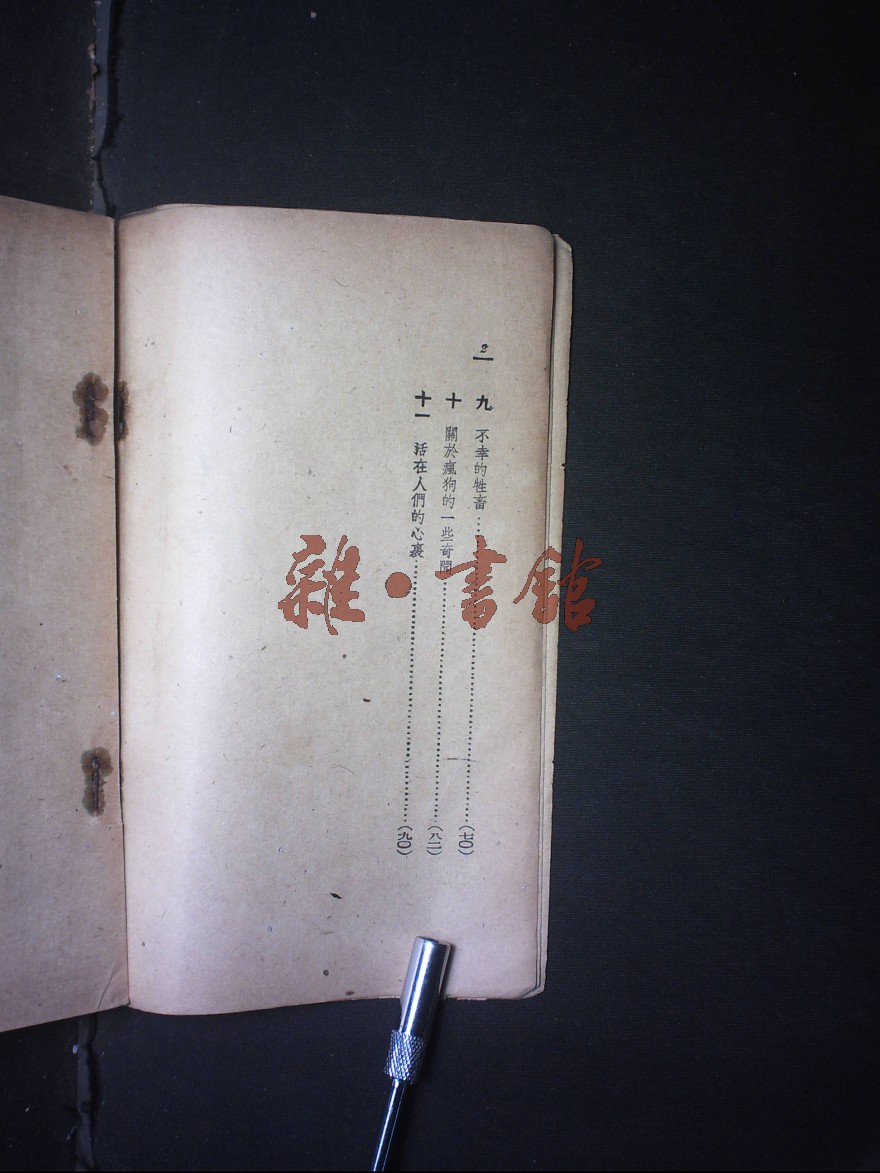 2
九 不幸的牲畜……(七〇)
十 關於瘋狗的一些奇聞……(八二)
十一 活在人們的心裏……(九〇)
雜·書館